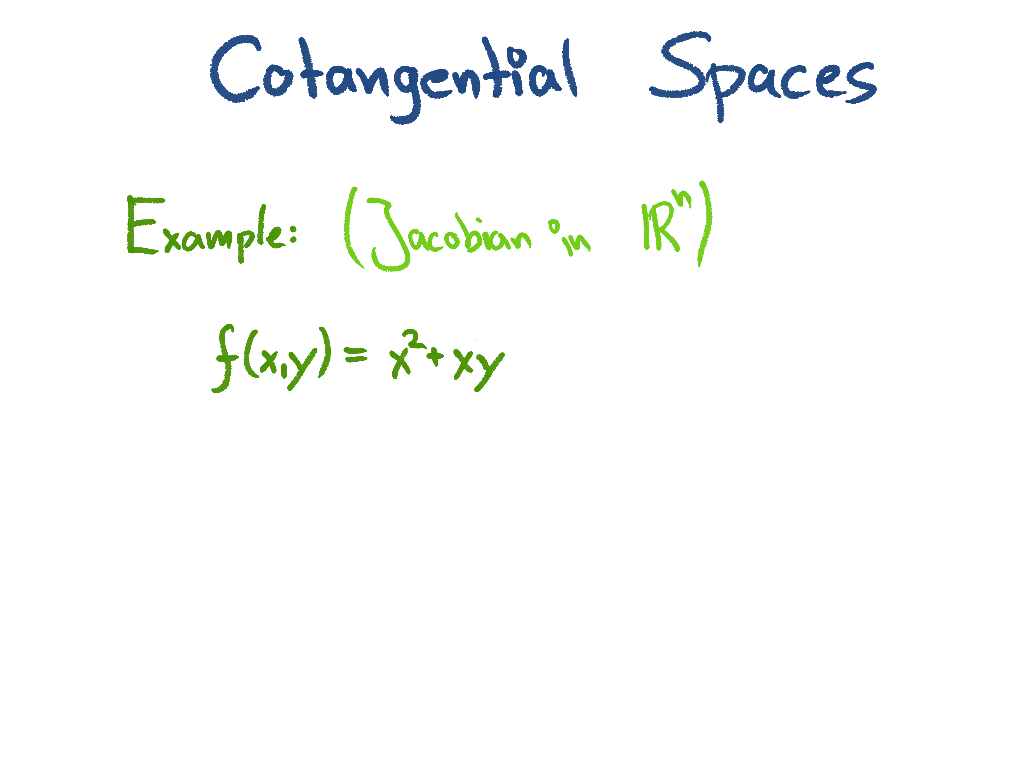 Cotangential Spaces
Example: (Jacobian in ℝⁿ)
f(x,y) = x² + xy